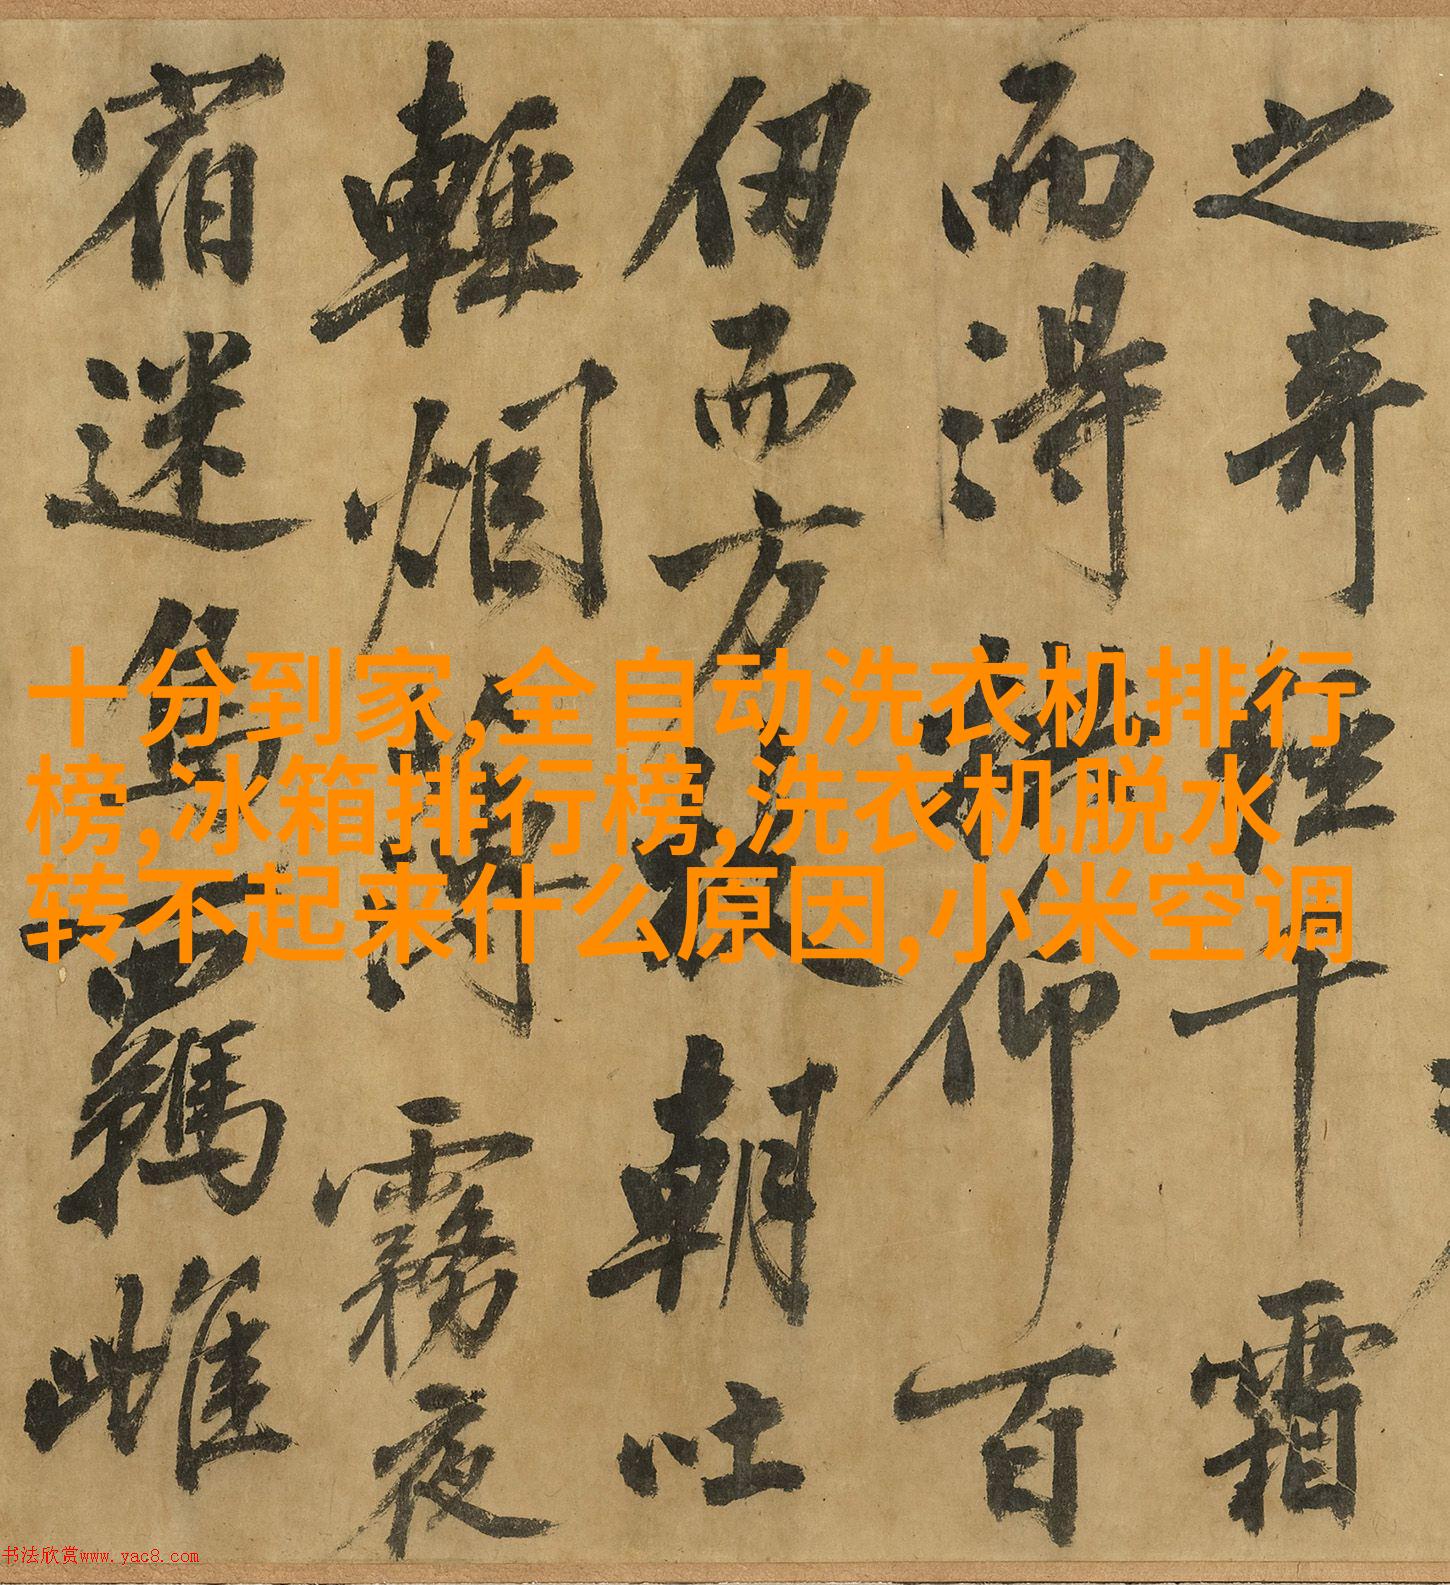 之奇經千霜
而得仰百
伊而方朝吐
輕烟薄霧夜
宿迷鳥羈雌
十分到家,全自动洗衣机排行
榜,冰箱排行榜,洗衣机脱水
转不起来什么原因,小米空调
书法欣赏www.yac8.com